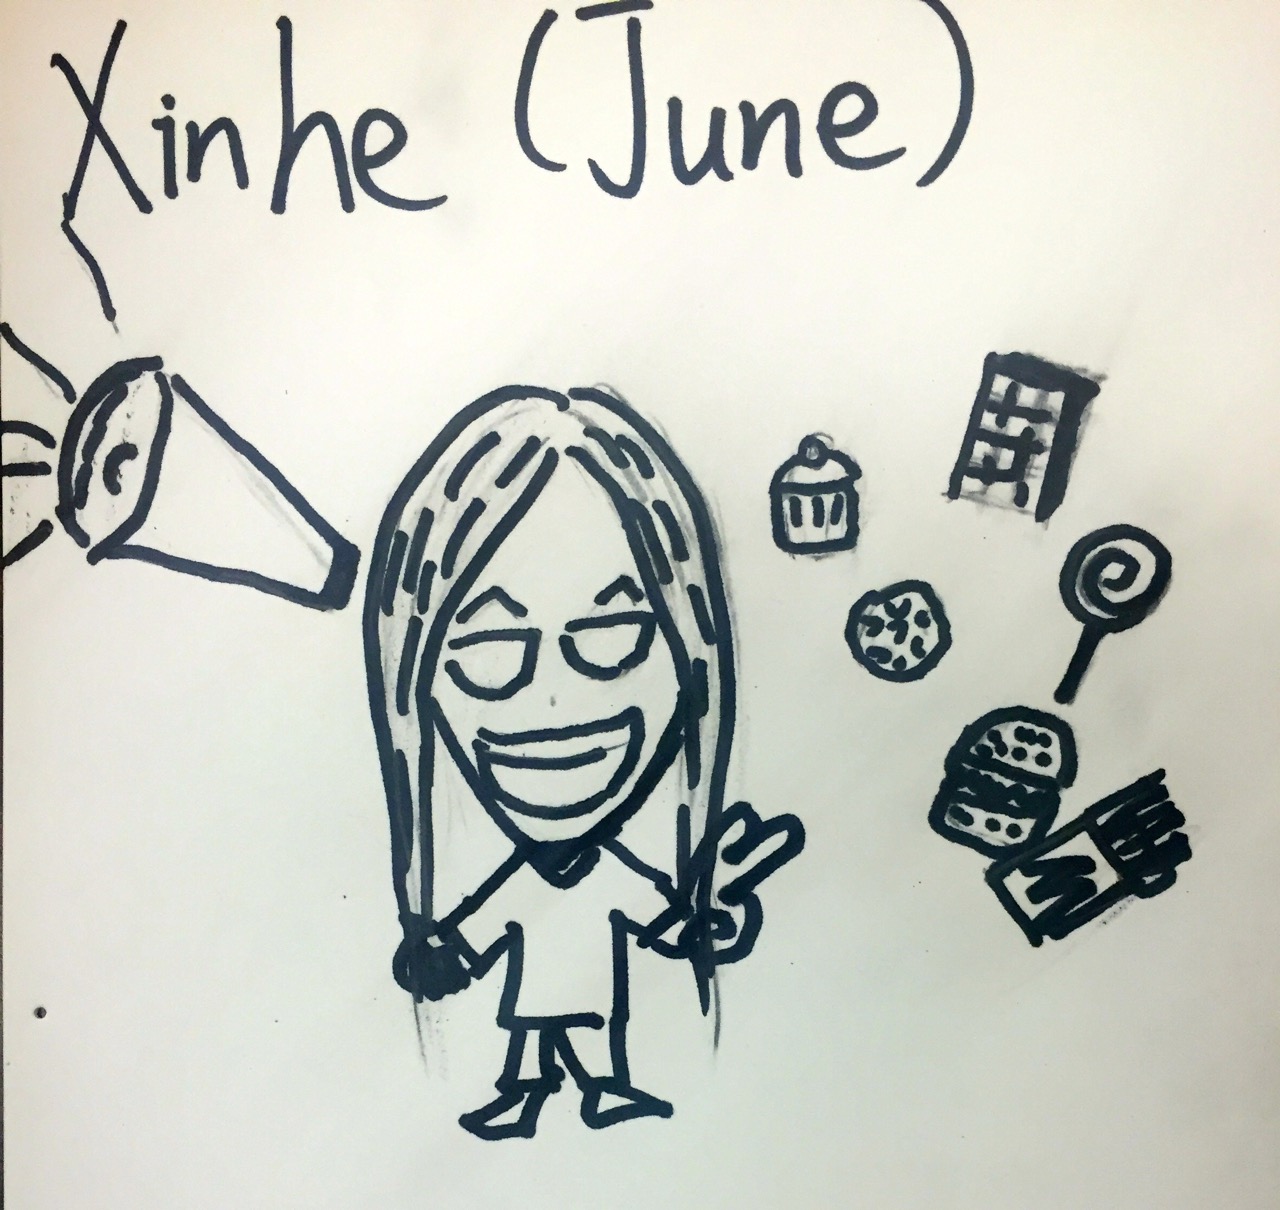 Xinhe (June)